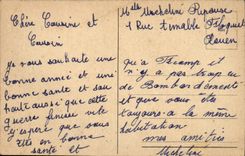 Chère Cousine et
Cousin
Je vous souhaite une
bonne année et une
bonne santé et sou
haite aussi que cette
guerre finisse vite
J'y espère que vous
êtes en bonne
santé et
Mlle Micheline
1 Rue
Rouen
qu'à Fécamp il
n'y a pas trop eu
de Bombardements
et que vous
êtes
toujours à la même
habitation
mes amitiés
Micheline